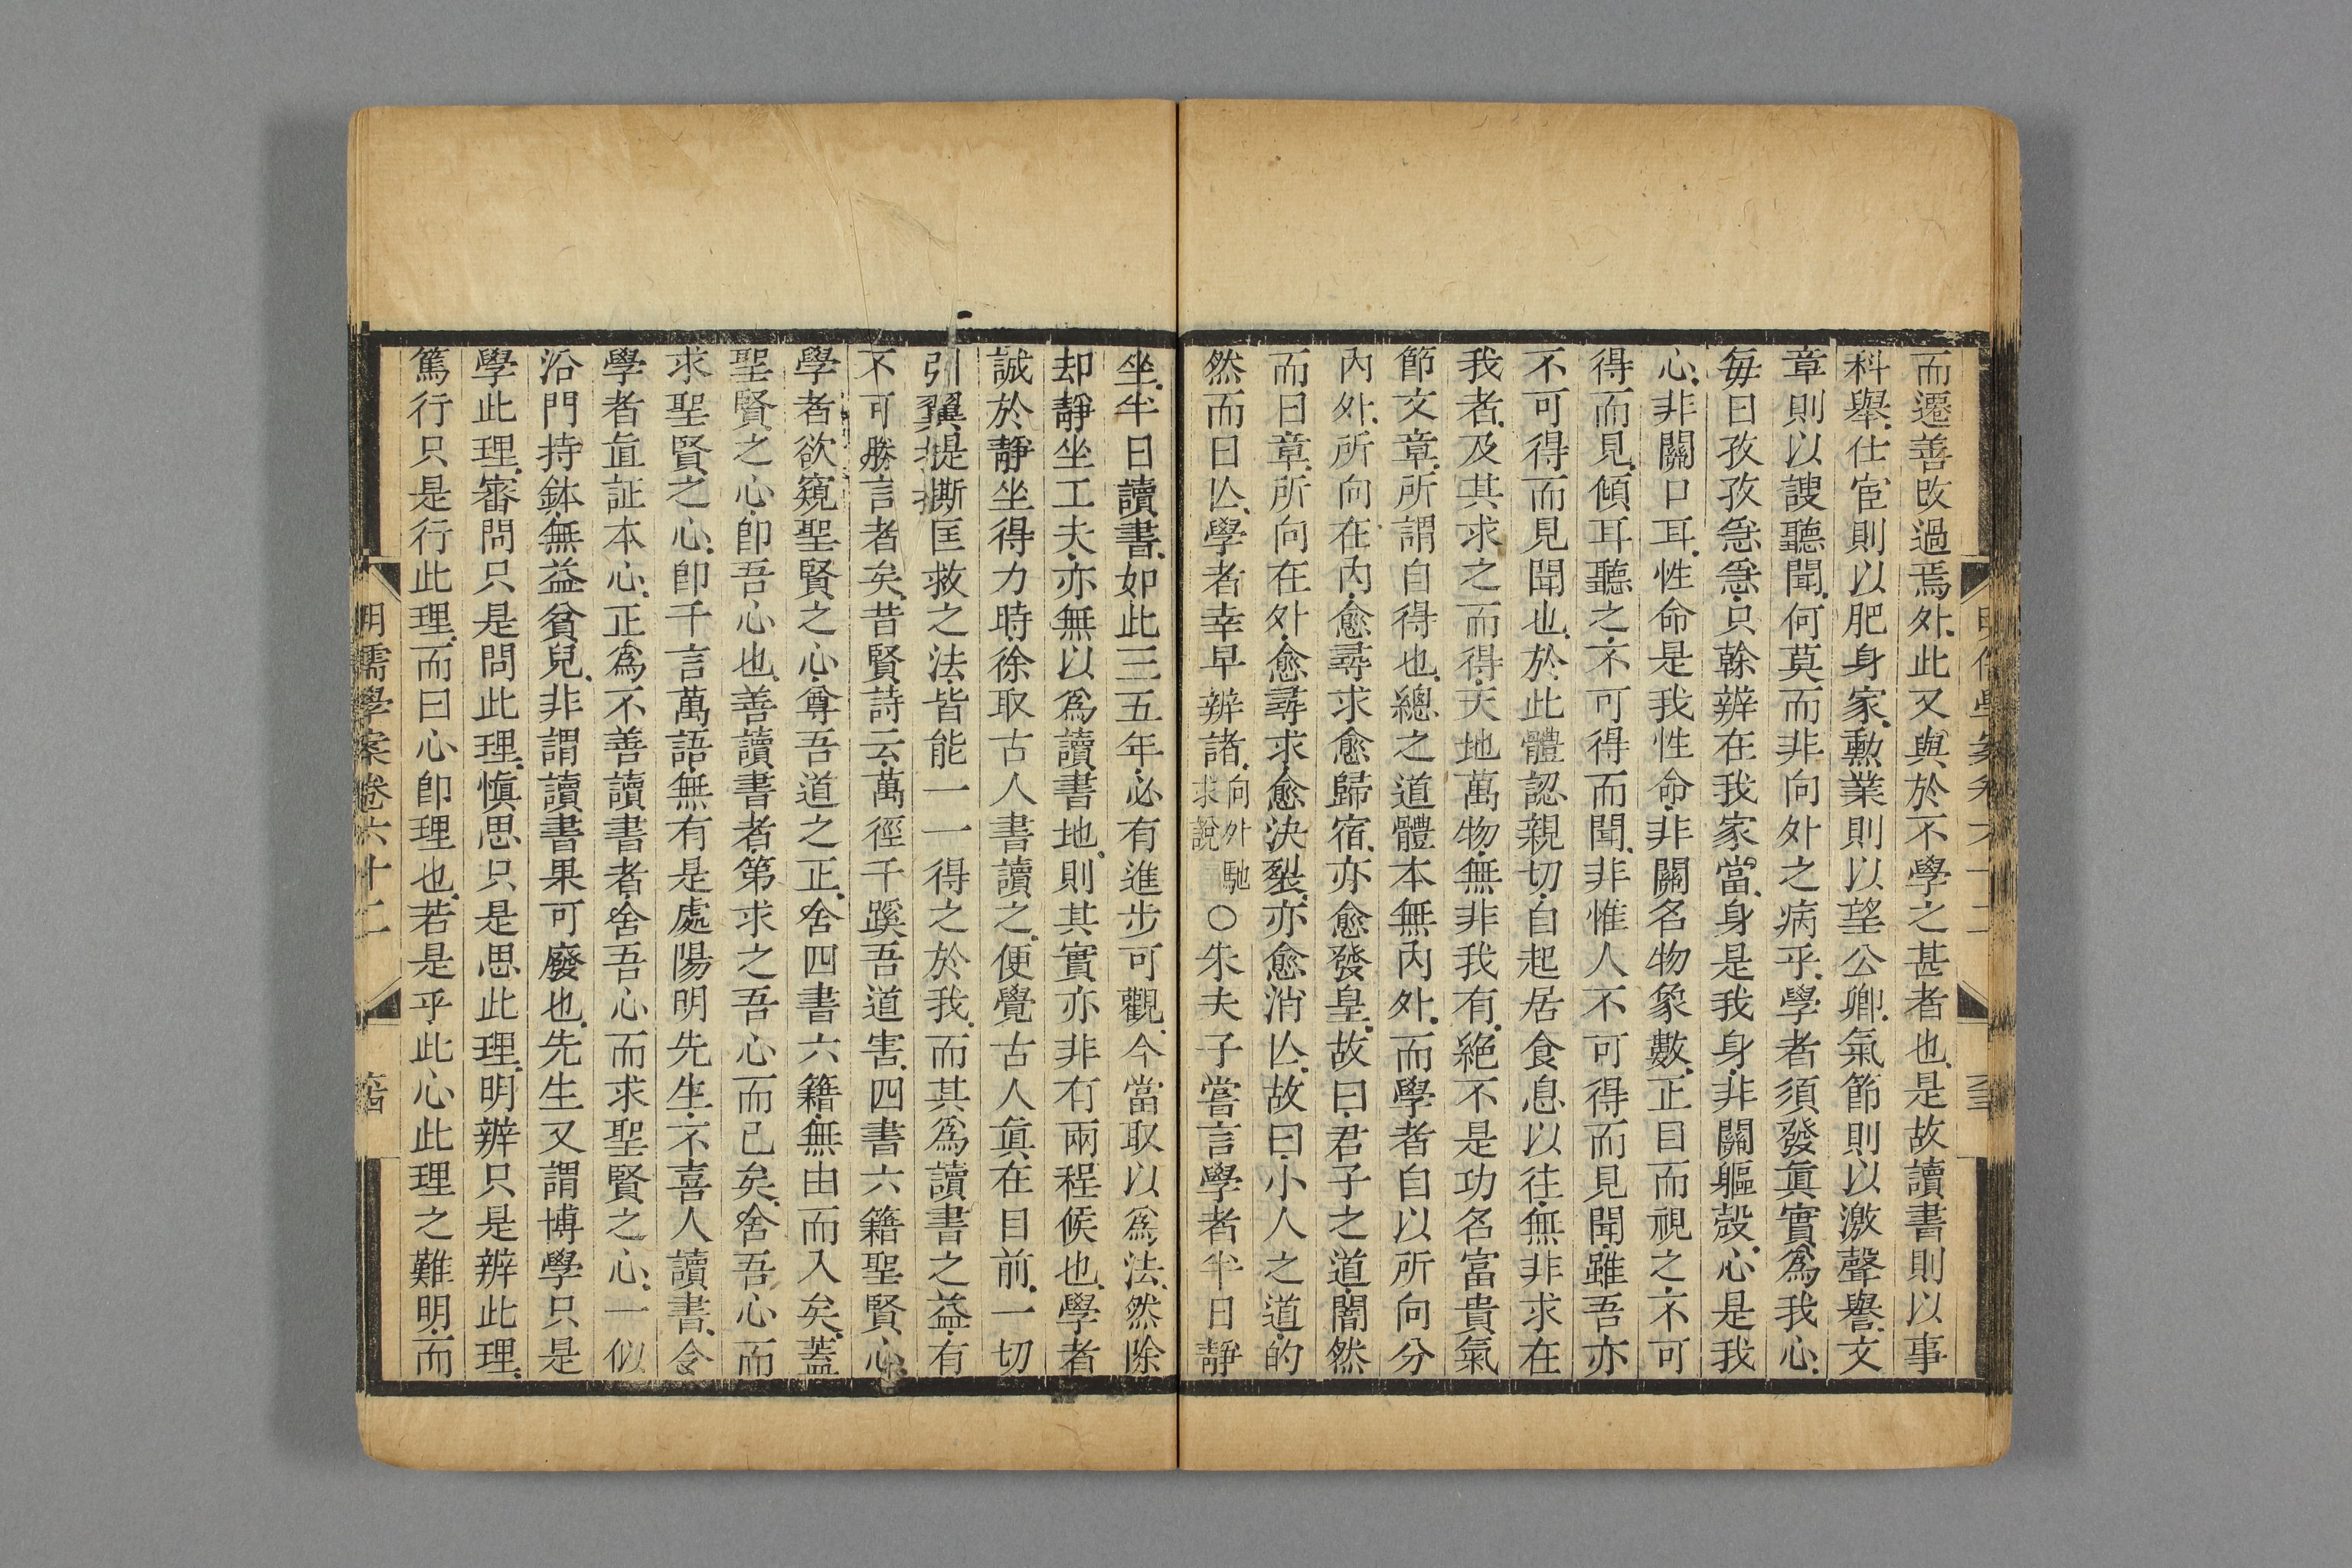 而遷善改過焉外此又與於不學之甚者也是故讀書則以事
科舉仕宦則以肥身家勳業則以望公卿氣節則以激聲譽文
章則以謏聽聞何莫而非向外之病乎學者須發眞實爲我心
每日孜孜急急只幹辨在我家當身是我身非關軀殼心是我
心非關口耳性命是我性命非關名物象數正目而視之不可
得而見傾耳聽之不可得而聞非惟人不可得而見聞雖吾亦
不可得而見聞也於此體認親切自起居食息以往無非求在
我者及其求之而得天地萬物無非我有絶不是功名富貴氣
節文章所謂自得也總之道體本無內外而學者自以所向分
內外所向在內愈尋求愈歸宿亦愈發皇故曰君子之道闇然
而日章所向在外愈尋求愈決裂亦愈消亾故曰小人之道的
然而日亾學者幸早辨諸向外馳求說○朱夫子嘗言學者半日靜
坐半日讀書如此三五年必有進步可觀今當取以爲法然除
却靜坐工夫亦無以爲讀書地則其實亦非有兩程候也學者
誠於靜坐得力時徐取古人書讀之便覺古人眞在目前一切
引翼提撕匡救之法皆能一一得之於我而其爲讀書之益有
不可勝言者矣昔賢詩云萬徑千蹊吾道害四書六籍聖賢心
學者欲窺聖賢之心尊吾道之正舍四書六籍無由而入矣蓋
聖賢之心卽吾心也善讀書者第求之吾心而已矣舍吾心而
求聖賢之心卽千言萬語無有是處陽明先生不喜人讀書令
學者直証本心正爲不善讀書者舍吾心而求聖賢之心一似
沿門持鉢無益貧兒非謂讀書果可廢也先生又謂博學只是
學此理審問只是問此理愼思只是思此理明辨只是辨此理
篤行只是行此理而曰心卽理也若是乎此心此理之難明而
明儒學案卷六十二